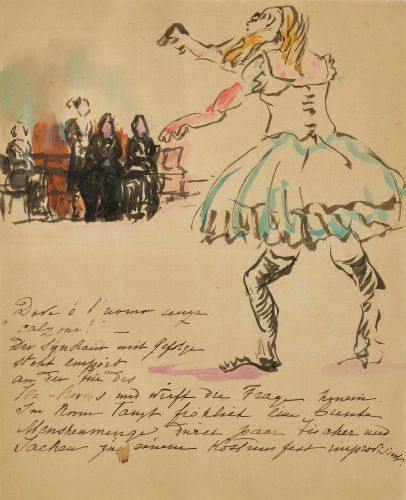 Dove é l'uomo senza
"calzoni?" —
Der Syndaco mit Gefolge
steht empört
an der Tür des
Tea-Rooms und wirft die Frage hinein.
Im Room tanzt fröhlich eine bunte
Menschenmenge paar Fischer und
Sachen zu einem Kostümfest improvisiert